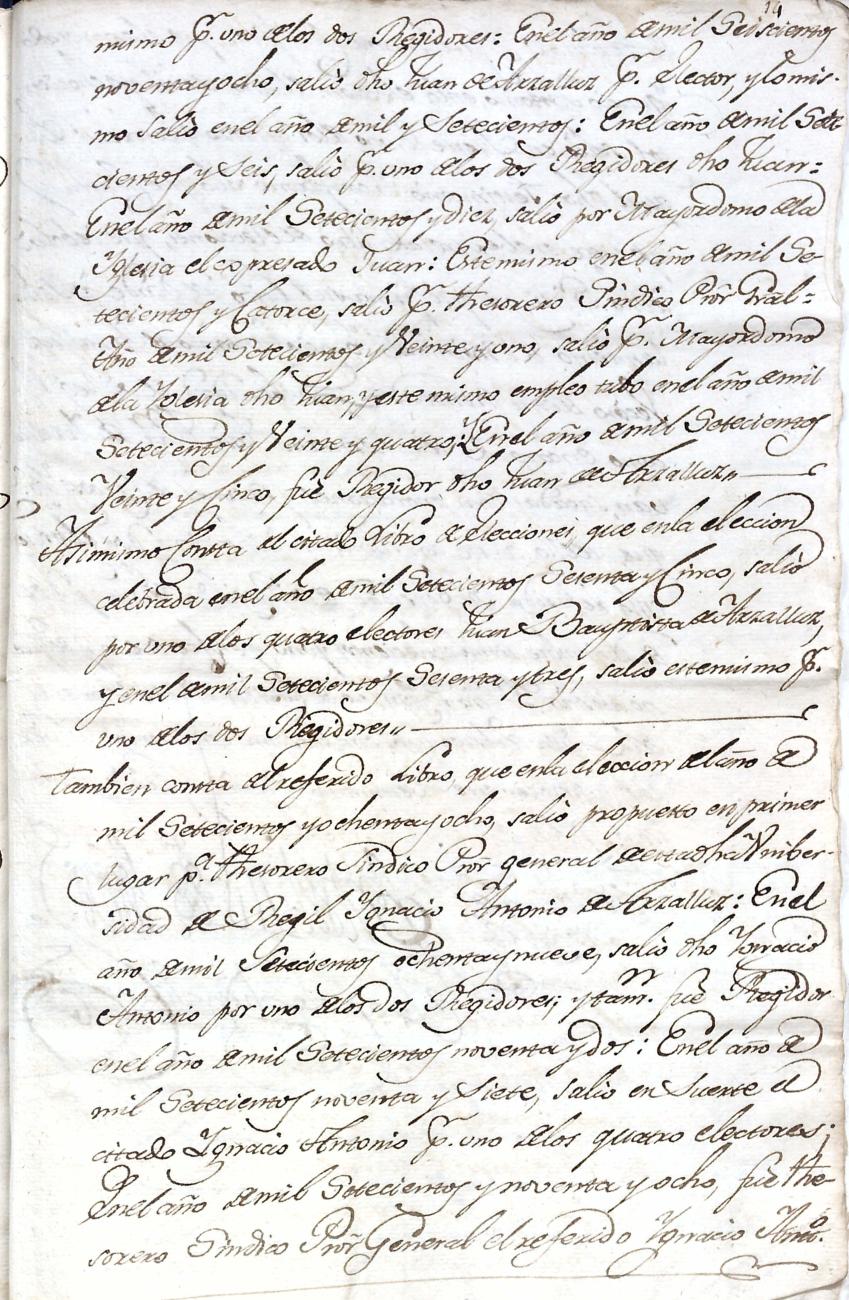 14
mismo pr. uno de los dos Regidores: En el año de mil Seiscientos
noventa y ocho, salió dho Juan de Arzalluz pr. elector, y lo mis-
mo salió en el año de mil y Setecientos: En el año de mil Sete
cientos y Seis, salió pr. uno de los dos Regidores dho Juan=
En el año de mil Setecientos y diez, salió por Mayordomo de la
Yglesia el expresado Juan: Este mismo en el año de mil Se-
tecientos y Catorce, salió pr. thesorero Sindico Pror Gral=
Año de mil Setecientos y Veinte y uno, salió pr. Mayordomo
de la Yglesia dho Juan, y este mismo empleo tubo en el año de mil
Setecientos y Veinte y quatro; Y En el año de mil Setecientos
Veinte y Cinco, fue Regidor dho Juan de Arzalluz,,
Asimismo Consta del citado Libro de elecciones, que en la eleccion
celebrada en el año de mil Setecientos Sesenta y Cinco, salió
por uno de los quatro electores Juan Bauptista de Arzalluz,
y en el de mil Setecientos Sesenta y tres, salió este mismo pr.
uno de los dos Regidores,,
Tambien consta del referido Libro, que en la eleccion del año de
mil Setecientos y ochenta y ocho, salió propuesto en primer
lugar pa. thesorero Sindico Pror general de esta dha Vniber-
sidad de Regil Ygnacio Antonio de Arzalluz: En el
año de mil Setecientos ochenta y nueve, salió dho Ygnacio
Antonio por uno de los dos Regidores; y tamn. fue Regidor
en el año de mil Setecientos noventa y dos: En el año de
mil Setecientos noventa y Siete, salió en Suerte el
citado Ygnacio Antonio pr. uno de los quatro electores;
En el año de mil Setecientos y noventa y ocho, fue the-
sorero Sindico Pror General el referido Ygnacio Anto.